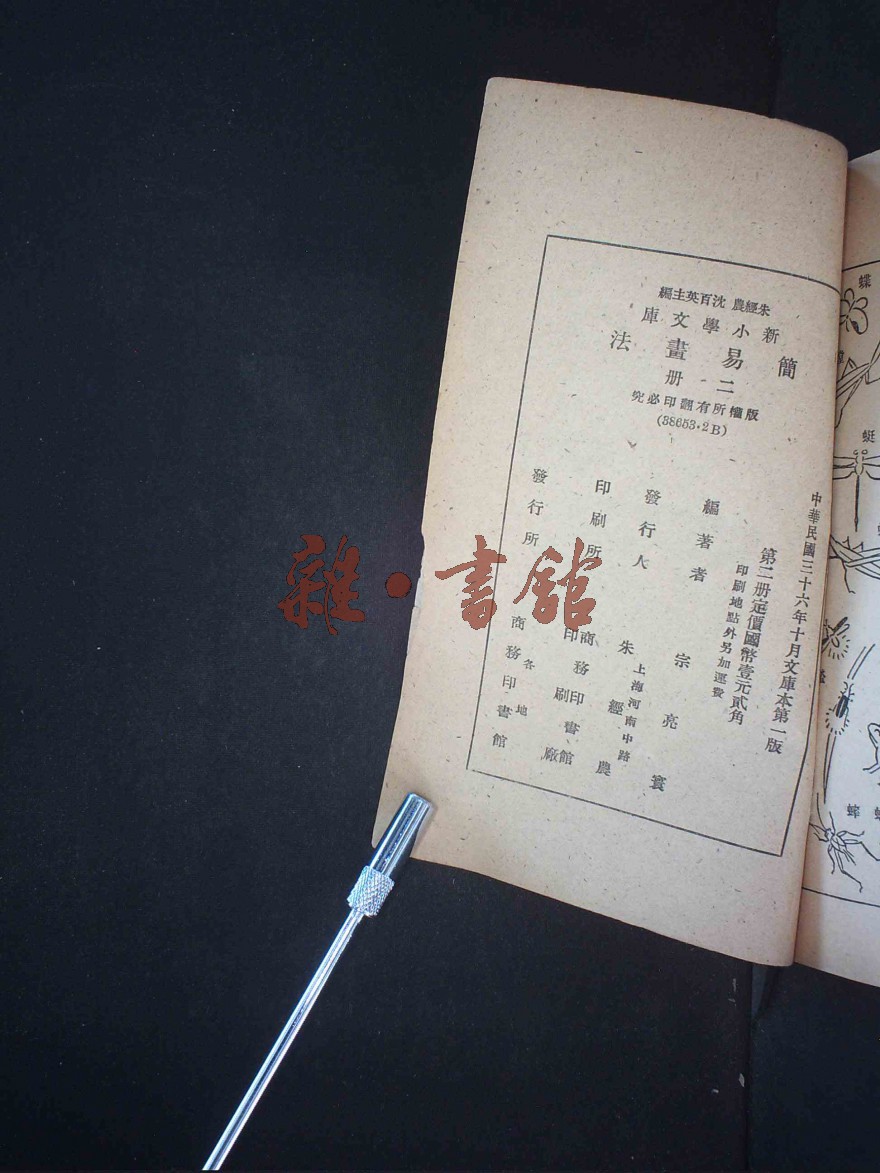 朱經農 沈百英主編
新小學文庫
簡易畫法
二册
版權所有翻印必究
(38653·2B)
中華民國三十六年十月文庫本第一版
第二册定價國幣壹元貳角
印刷地點外另加運費
編著者 宗亮寰
發行人 朱經農
上海河南中路
印刷所 商務印書館
印刷廠
發行所 各地
商務印書館
蝶
蜓
雜·書館